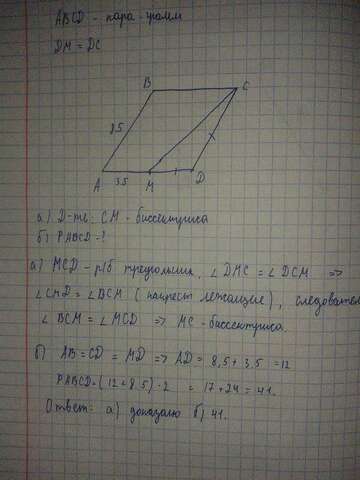 ABCD - пара-грамм
DM = DC
B
C
8.5
A
3.5
M
D
а) Д-ть: CM - биссектриса
б) PABCD = ?
а) MCD - р/б треугольник, ∠ DMC = ∠ DCM =>
∠ CMD = ∠ BCM (накрест лежащие), следовател
∠ BCM = ∠ MCD => MC - биссектриса.
б) AB = CD = MD => AD = 8,5 + 3.5 = 12
PABCD = (12 + 8.5) · 2 = 17 + 24 = 41.
Ответ: а) доказано б) 41.